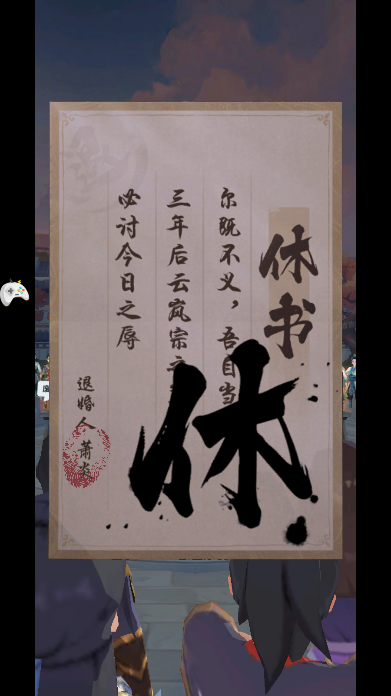 休书
尔既不义，吾自当
三年后云岚宗之
必讨今日之辱
退婚人萧炎
休